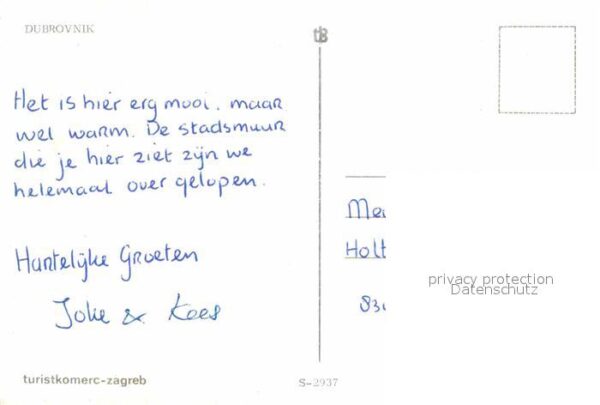 DUBROVNIK
Het is hier erg mooi, maar
wel warm. De stadsmuur
die je hier ziet zijn we
helemaal over gelopen.
Hartelijke Groeten
Joke & Kees
turistkomerc-zagreb
S-2937
tB
Mei
Holt
privacy protection
Datenschutz